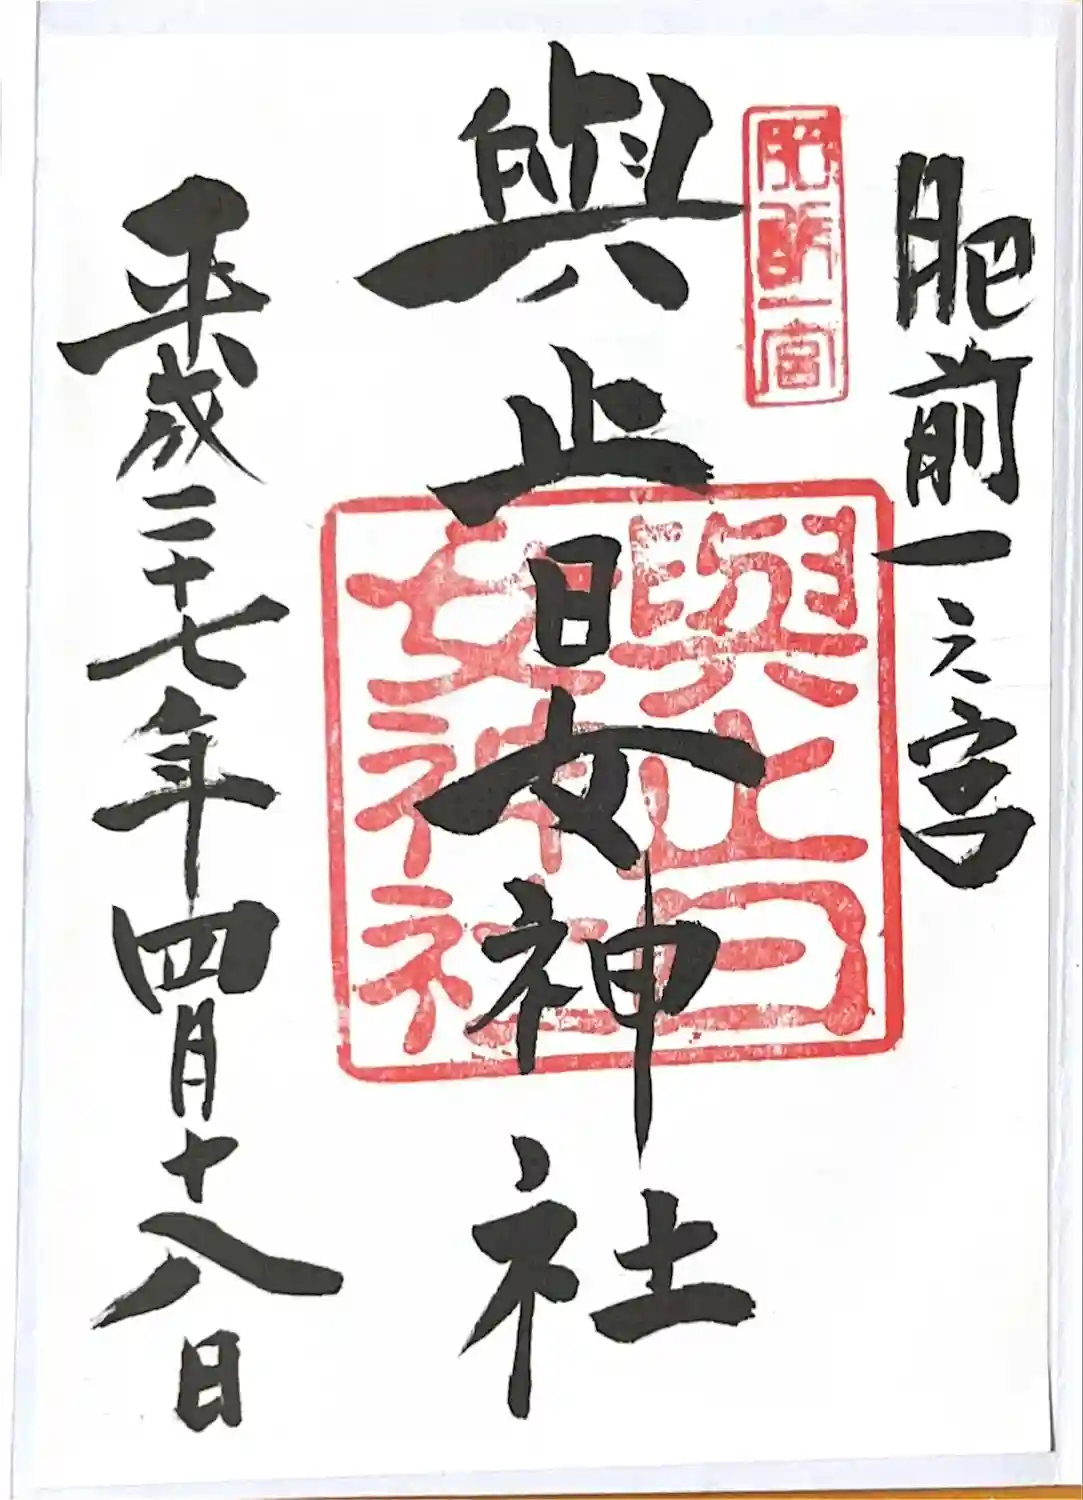 肥前一之宮
肥前一宮
與止日女神社
與止日女神社
平成二十七年四月十八日